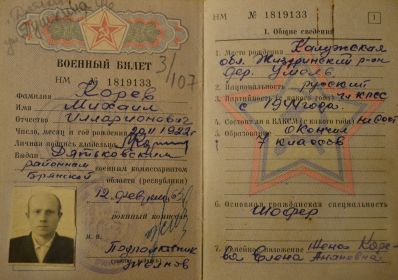 3/107
ВОЕННЫЙ БИЛЕТ
НМ № 1819133
Фамилия Корев
Имя Михаил
Отчество Илларионович
Число, месяц и год рождения 20 II 1922 г.
Личная подпись владельца
Выдан Дятьковским
районным военным комиссариатом
Брянской области (республики)
12 февраля
военный комиссар
м. п.
Подполковник
НМ № 1819133
1
I. Общие сведения
1. Место рождения Калужская
обл. Жиздринский р-он
дер.
2. Национальность русский
3. Партийность и с какого года чл КПСС
с
4. Состоит ли в ВЛКСМ (с какого года) не сост
5. Образование окончил
7 классов
6. Основная гражданская специальность
Шофер
7. Семейное положение Жена Корева
Елена